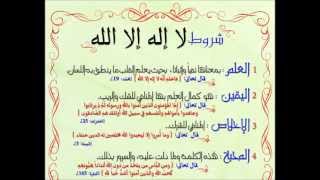 شروط لا إله إلا الله
1 العلم : بمعناها نفيا وإثباتا ، بحيث يعلم القلب ما ينطق به اللسان.
قال تعالى : ( فاعلم أنه لا إله إلا الله ) [محمد : 19].
2 اليقين : هو كمال العلم بها المنافي للشك والريب.
قال تعالى : ( إنما المؤمنون الذين آمنوا بالله ورسوله ثم لم يرتابوا
وجاهدوا بأموالهم وأنفسهم في سبيل الله أولئك هم الصادقون )
[الحجرات : 15].
3 الإخلاص : المنافي للشرك.
قال تعالى : ( وما أمروا إلا ليعبدوا الله مخلصين له الدين حنفاء )
[البينة : 5]
4 المحبة : لهذه الكلمة ولما دلت عليه، والسرور بذلك.
قال تعالى : ( ومن الناس من يتخذ من دون الله أندادا يحبونهم
كحب الله والذين آمنوا أشد حبا لله ) [البقرة : 165]